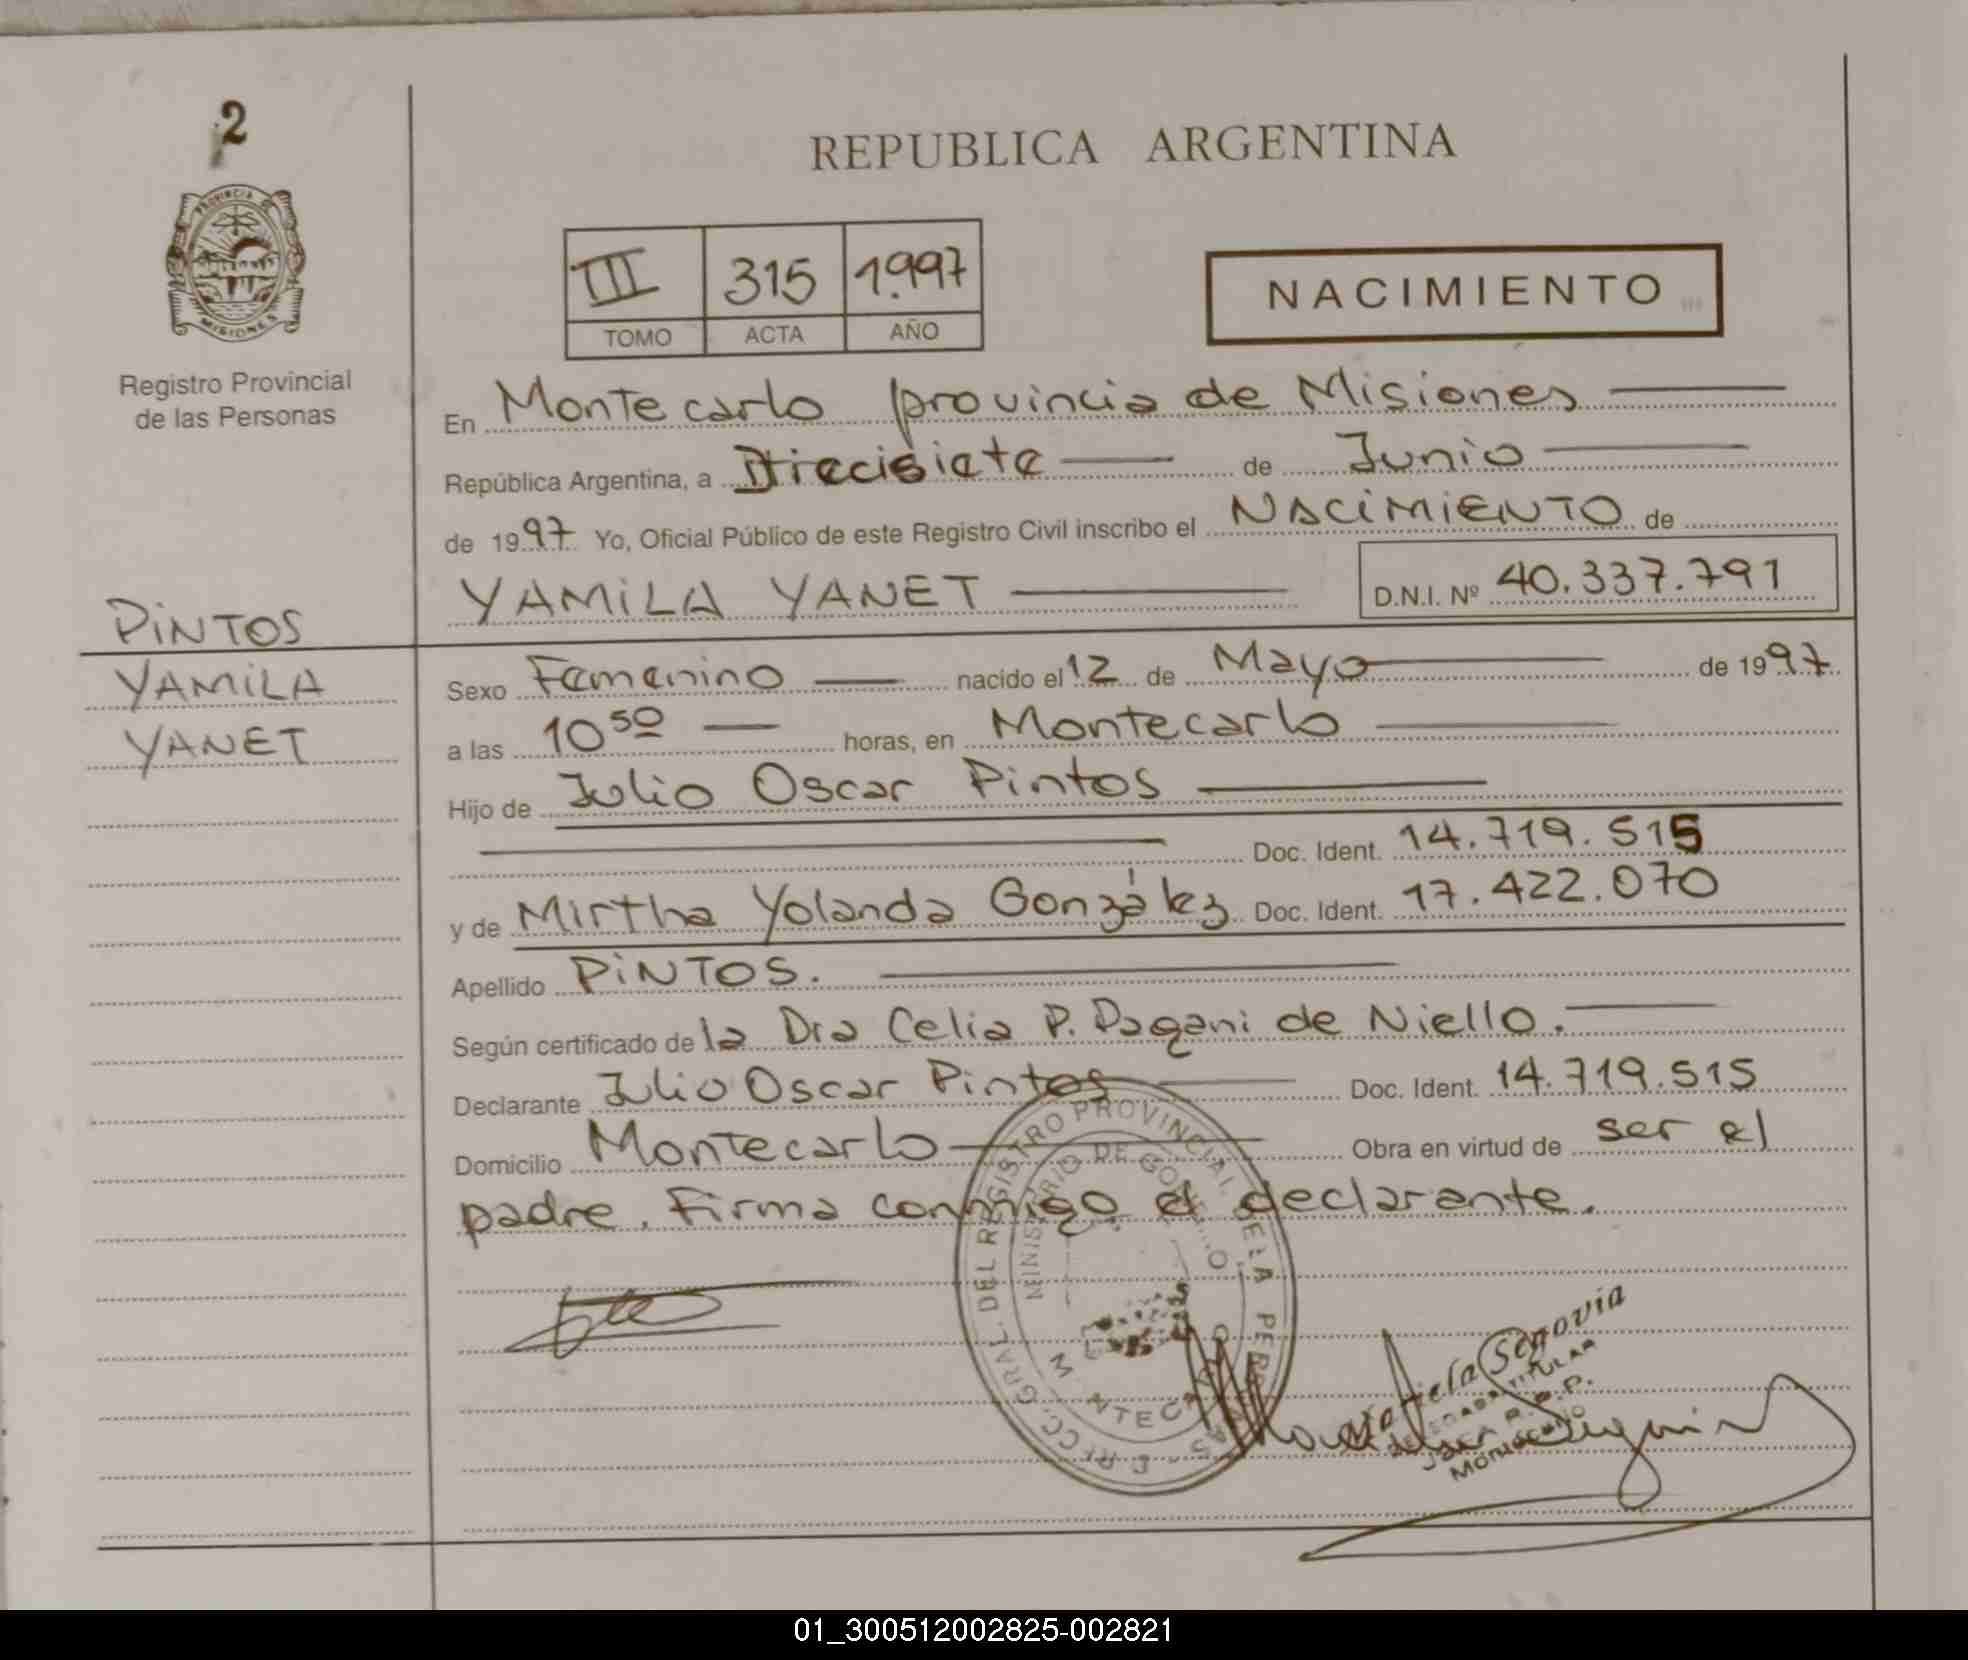 2
PROVINCIA DE
MISIONES
Registro Provincial
de las Personas
REPUBLICA ARGENTINA
III 315 1.997
TOMO ACTA AÑO
NACIMIENTO
En Montecarlo provincia de Misiones
República Argentina, a Diecisiete de Junio
de 1997 Yo, Oficial Público de este Registro Civil inscribo el NACIMIENTO de
YAMILA YANET D.N.I. Nº 40.337.791
PINTOS
YAMILA
YANET
Sexo Femenino nacido el 12 de Mayo de 1997
a las 10 50 horas, en Montecarlo
Hijo de Julio Oscar Pintos
Doc. Ident. 14.719.515
y de Mirtha Yolanda González Doc. Ident. 17.422.070
Apellido PINTOS.
Según certificado de la Dra Celia P. Pagani de Niello.
Declarante Julio Oscar Pintos Doc. Ident. 14.719.515
Domicilio Montecarlo Obra en virtud de ser el
padre. Firma conmigo el declarante.
GRAL. DEL REGISTRO PROVINCIAL DE LA
MINISTERIO DE
Segovia
TITULAR
01_300512002825-002821